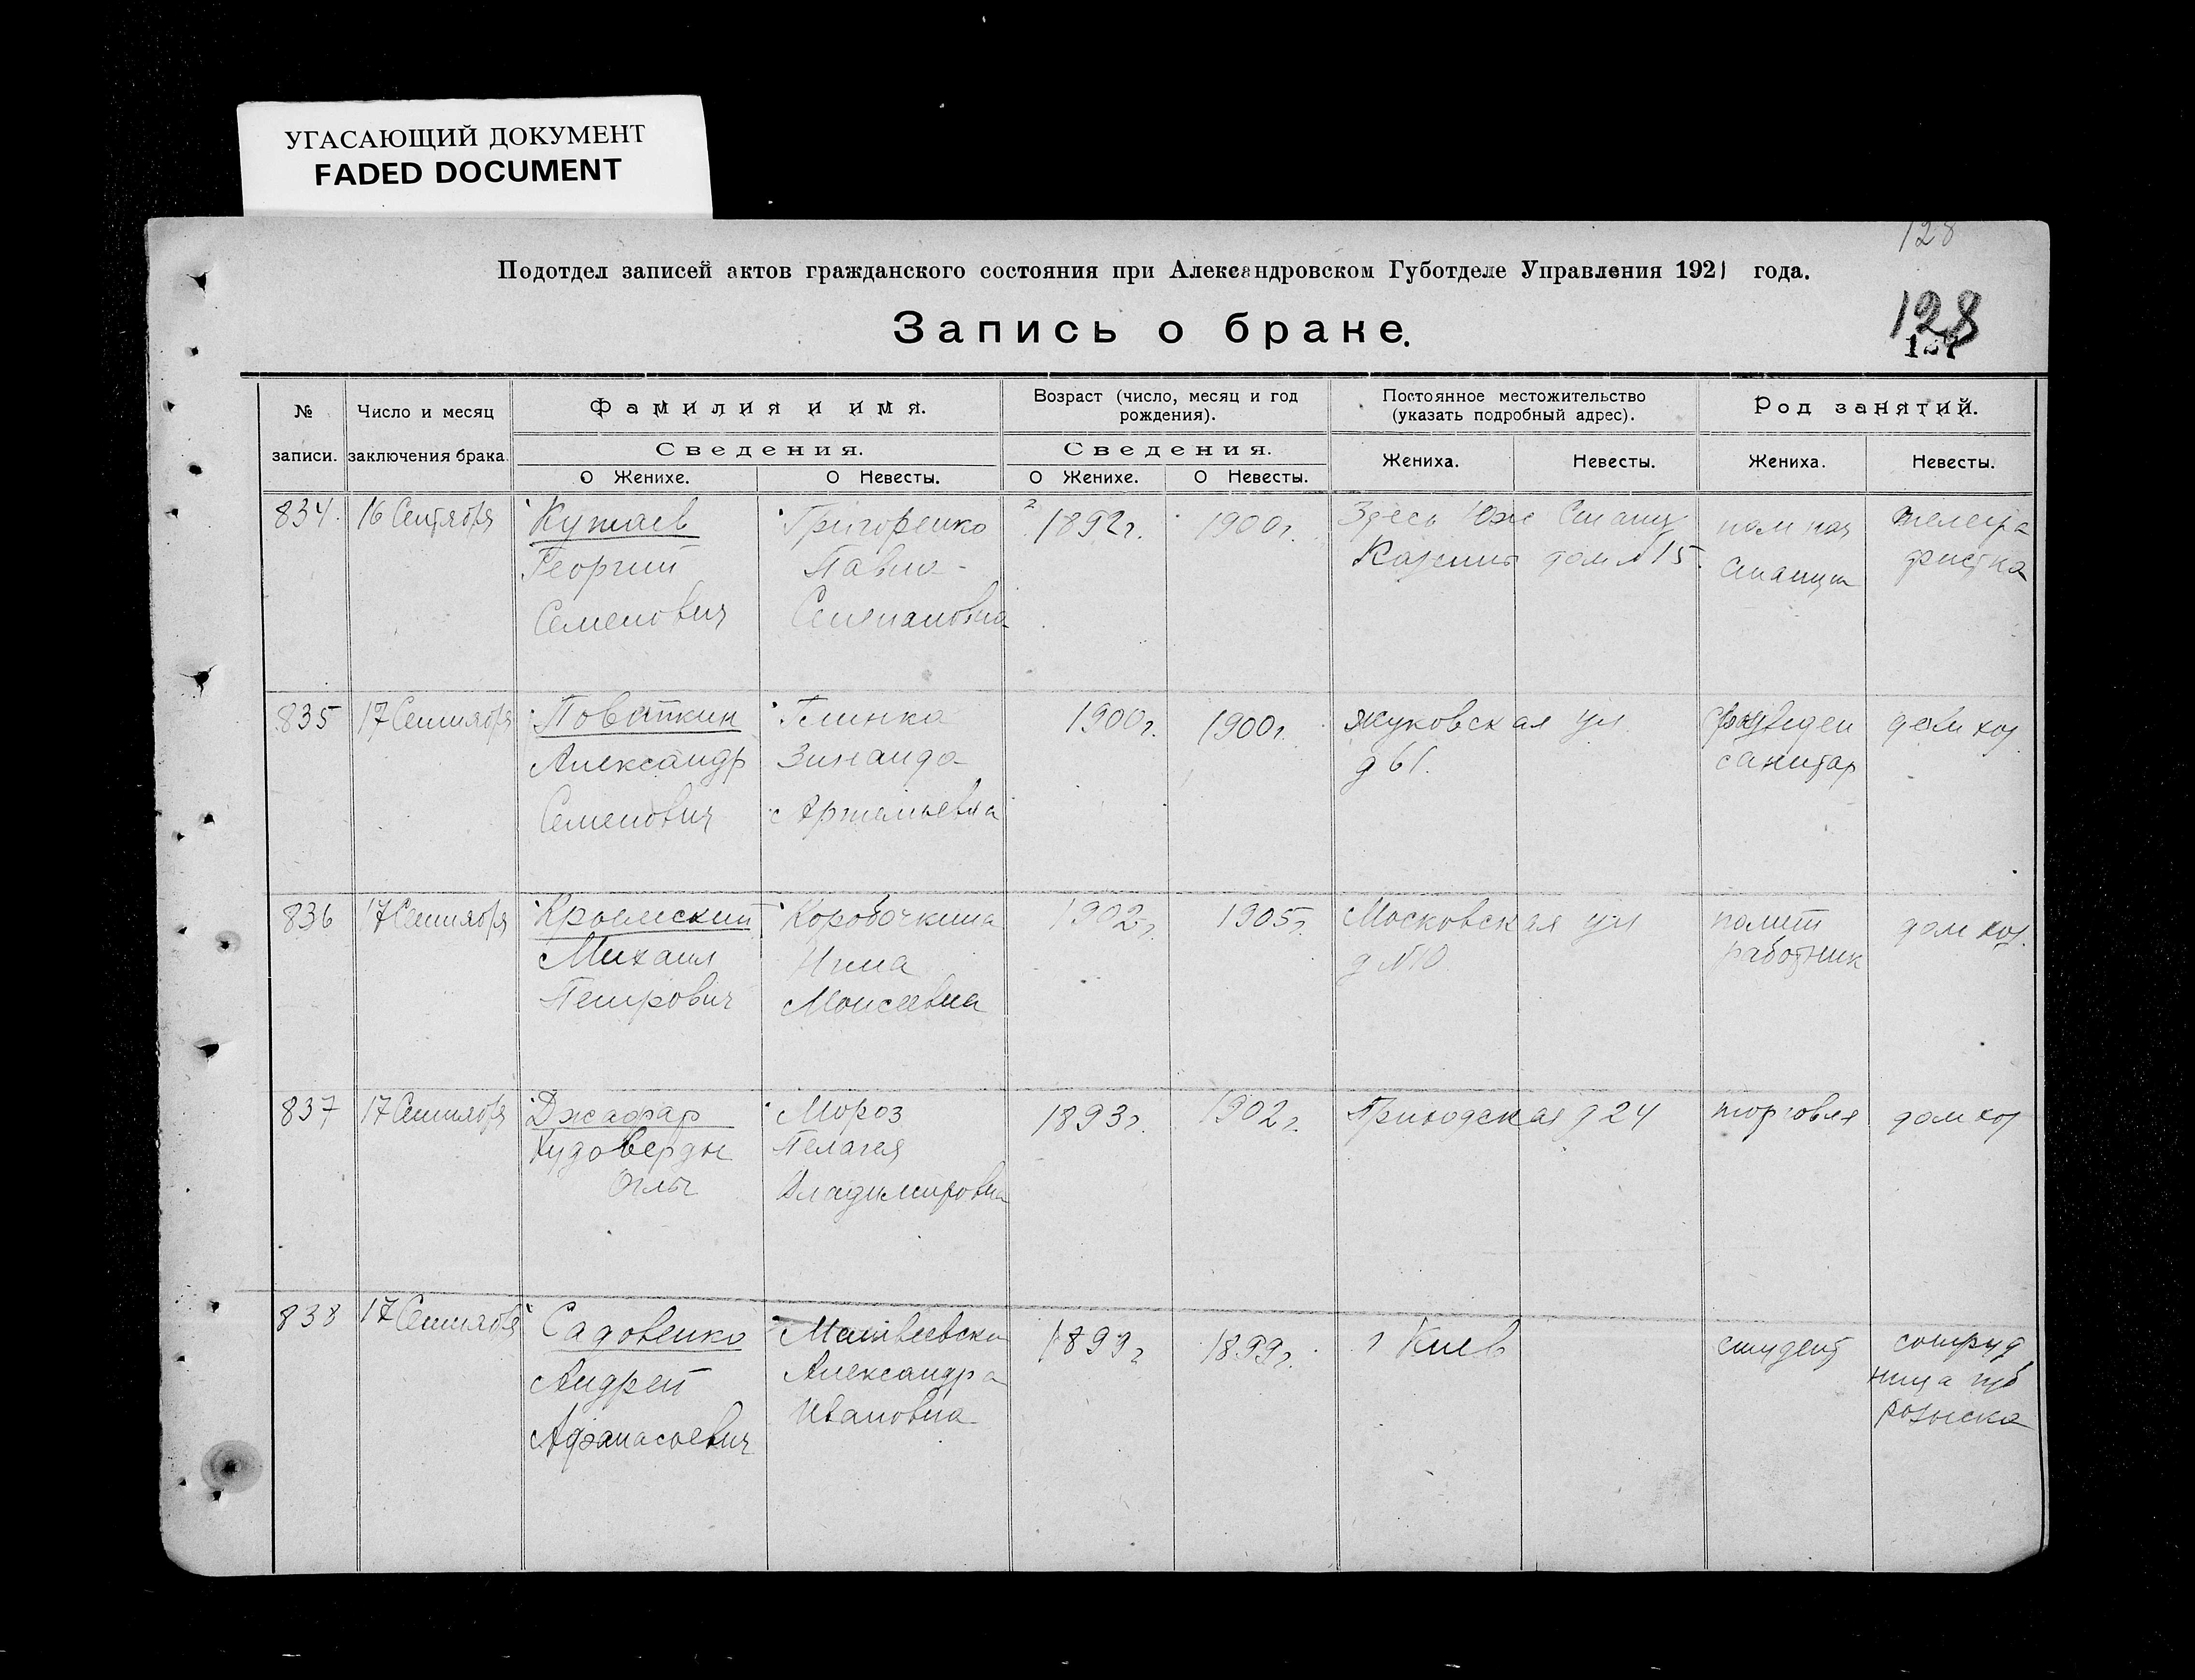 УГАСАЮЩИЙ ДОКУМЕНТ
FADED DOCUMENT
128
Подотдел записей актов гражданского состояния при Александровском Губотделе Управления 1921 года.
Запись о браке.
128
№ записи.
Число и месяц заключения брака.
Фамилия и имя.
Сведения.
О Женихе.
О Невесты.
Возраст (число, месяц и год рождения).
Сведения.
О Женихе.
О Невесты.
Постоянное местожительство (указать подробный адрес).
Жениха.
Невесты.
Род занятий.
Жениха.
Невесты.
834.
16 Сентября
Кутаев
Георгий
Семенович
Григоренко
Степановна
1892г.
1900г.
Здесь Юж Станц
дом №15.
пом нач
станции
телегра
фистка
835
17 Сентября
Поваткин
Александр
Семенович
Глинка
Зинаида
Артемьевна
1900г.
1900г.
Жуковская ул
д 61.
санитар
дом хоз
836
17 Сентября
Крымский
Михаил
Петрович
Коробочкина
Нина
Моисеевна
1902г.
1905г.
Московская ул
д №10
полит
работник
дом хоз.
837
17 Сентября
Джафар
Худоверды
Оглы
Мороз
Пелагея
Владимировна
1893г.
1902г.
Приходская д 24
торговля
дом хоз
838
17 Сентября
Садовенко
Андрей
Афанасьевич
Матвеевска
Александра
Ивановна
1899г
1899г.
г Киев
студент
сотруд
ница губ
розыска